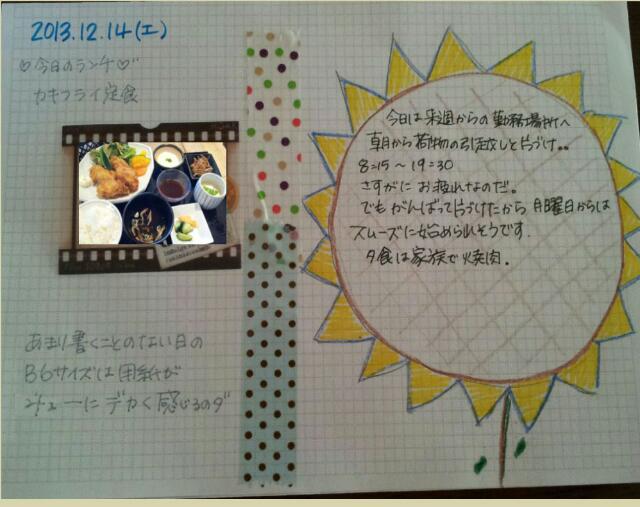 2013.12.14(土)
♡今日のランチ♡
カキフライ定食
今日は来週からの勤務場所へ
朝から荷物の引越しと片づけ。
8:15〜19:30
さすがに お疲れなのだ。
でも がんばって片づけたから 月曜日からは
スムーズに始められそうです.
夕食は家族で焼肉.
あまり書くことのない日の
B6サイズは用紙が
ミョーにデカく感じるのダ